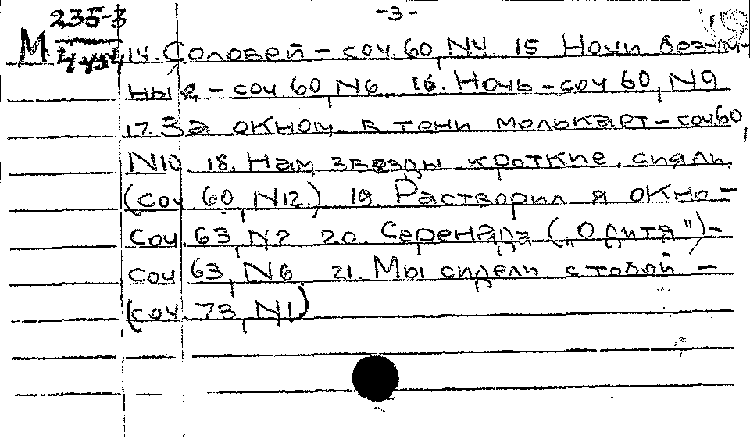 235-3
-3-
М
14. Соловей - соч. 60, N4 15 Ночи безум-
ные - соч 60, N6 16. Ночь - соч 60, N9
17. За окном в тени мелькает - соч 60,
N10 18. Нам звезды кроткие сияли
(соч 60, N12) 19 Растворил я окно -
соч. 63, N2 20. Серенада („О дитя") -
соч 63, N6 21. Мы сидели с тобой -
(соч. 73, N1)